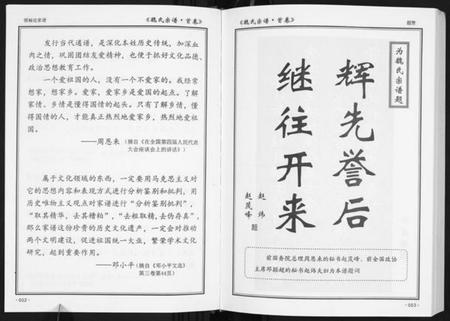 领袖论家谱
《魏氏宗谱·首卷》
发行当代通谱，是深化本姓历史传统，加深血
肉之情，巩固团结友爱精神，也便于抓好文化品德、
政治思想教育工作。
一个爱祖国的人，没有一个不爱家的。我经常
想家，想家乡。爱家、爱家乡是爱国的起点。了解
家情、乡情是懂得国情的起头。只有了解乡情，懂
得国情的人，才能真正热忱地爱家乡、热烈地爱祖
国。
——周恩来（摘自《在全国第四届人民代表
大会座谈会上的讲话》）
属于文化领域的东西，一定要用马克思主义对
它的思想内容和表现方式进行分析鉴别和批判，用
历史唯物主义观点对家谱进行“分析鉴别批判”，
“取其精华，去其糟粕”，“去粗取精，去伪存真”，
那么家谱这份珍贵的历史文化遗产，一定会对推动
两个文明建设，促进祖国统一大业，繁荣学术文化研
究，起到重要作用。
——邓小平（摘自《邓小平文选》
第三卷第44页）
·002·
《魏氏宗谱·首卷》
题赞
为魏氏宗谱题
辉先誉后
继往开来
赵炜
赵茂峰 题
前国务院总理周恩来的秘书赵茂峰、前全国政协
主席邓颖超的秘书赵炜夫妇为本谱题词
·003·